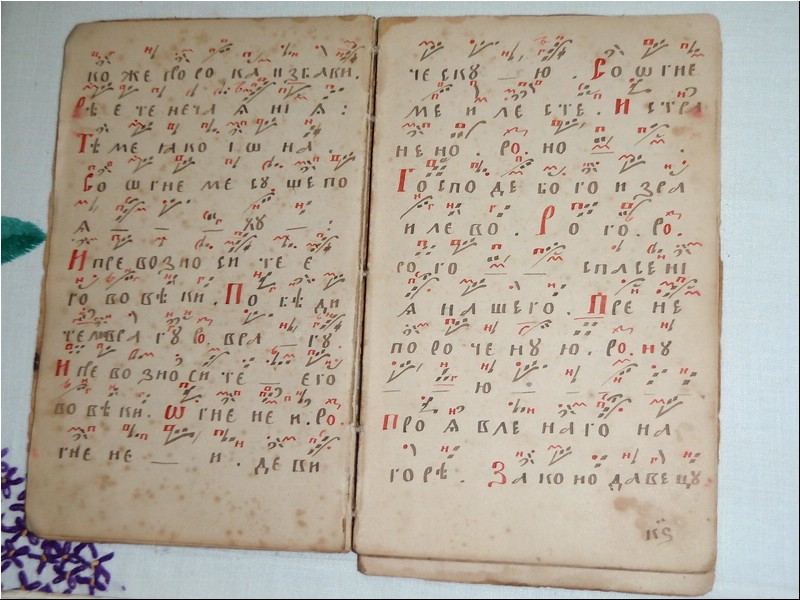 ко же про ро ка и збави.
рѣ е те неча ѧ ні ѧ :
Тѣ ме ꙗко і ѡ на .
Во ѡ гне ме су ще по
ѧ — — — ху — :
И пре во зно си те е
го во вѣ ки . По бѣ ди
те ли вра гу ро . вра — гу .
И пре во зно си те — его
во вѣ ки . Ѡ гне не и . ро .
гне не — и . де ви
че ску — ю . Во ѡ гне
ме и ле сте . И стра
не но . ро . но — .
Го спо де бо го и зра
и ле во . Ро го . ро .
ро го — — спасені
ѧ на шего . Пре не
по ро че ну ю . ро . ну
— — ю — — — —
Про ѧ вле на го на
го рѣ . За ко но давецу
кѕ